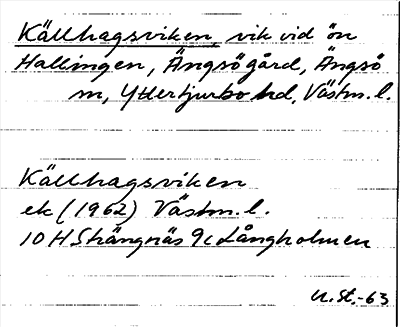 Källhagsviken, vik vid ön
Hallingen, Ängsögård, Ängsö
sn, Yttertjurbo hd, Västm. l.
Källhagsviken
ek (1962) Västm. l.
10 H Strängnäs 9c Långholmen
U. St. -63